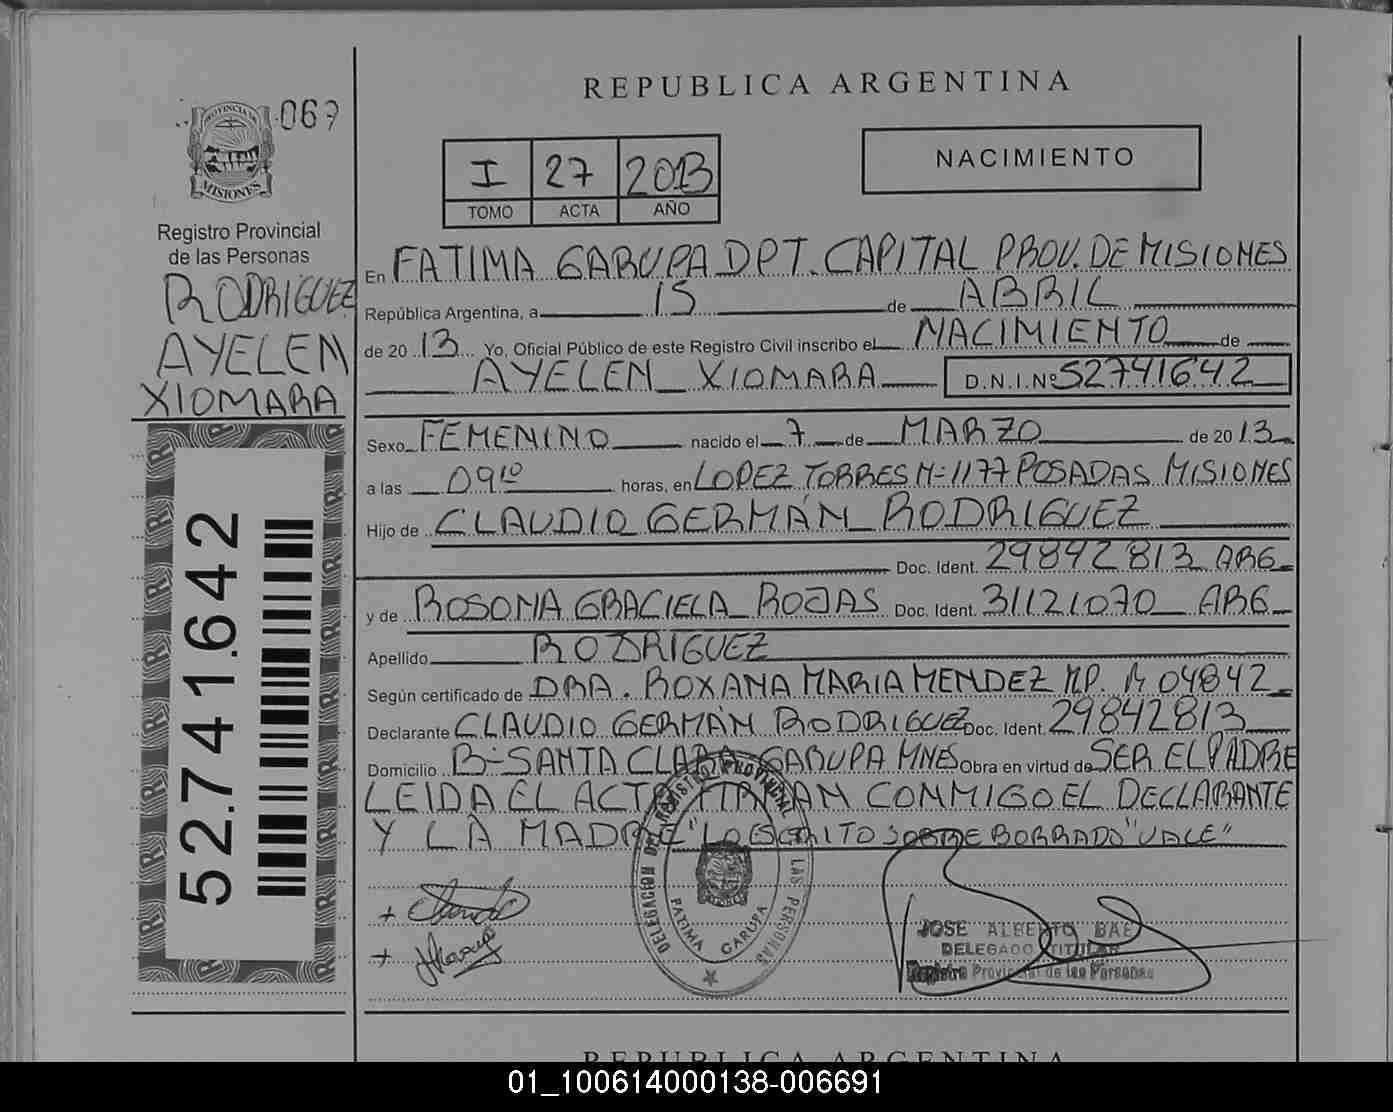 REPUBLICA ARGENTINA
PROVINCIA DE
MISIONES
069
Registro Provincial
de las Personas
RODRIGUEZ
AYELEN
XIOMARA
52.741.642
I 27 2013
TOMO ACTA AÑO
NACIMIENTO
En FATIMA GARUPA DPT. CAPITAL PROV. DE MISIONES
República Argentina, a 15 de ABRIL
de 2013 Yo, Oficial Público de este Registro Civil inscribo el NACIMIENTO de
AYELEN XIOMARA D.N.I.Nº 52741642
Sexo FEMENINO nacido el 7 de MARZO de 2013
a las 09 10 horas, en LOPEZ TORRES Nº 1177 POSADAS MISIONES
Hijo de CLAUDIO GERMÁN RODRIGUEZ
Doc. Ident. 29842813 ARG
y de ROSONA GRACIELA ROJAS Doc. Ident. 31121070 ARG
Apellido RODRIGUEZ
Según certificado de DRA. ROXANA MARIA MENDEZ MP. M 04842
Declarante CLAUDIO GERMÁN RODRIGUEZ Doc. Ident. 29842813
Domicilio Bº SANTA CLARA GARUPA MNES Obra en virtud de SER EL PADRE
LEIDA EL ACTA FIRMAN CONMIGO EL DECLARANTE
Y LA MADRE "LO ESCRITO SOBRE BORRADO "VALE"
DELEGACION DEL REGISTRO PROVINCIAL DE LAS PERSONAS
FATIMA GARUPA
JOSE ALBERTO BAE
DELEGADO TITULAR
Registro Provincial de las Personas
REPUBLICA ARGENTINA
01_100614000138-006691